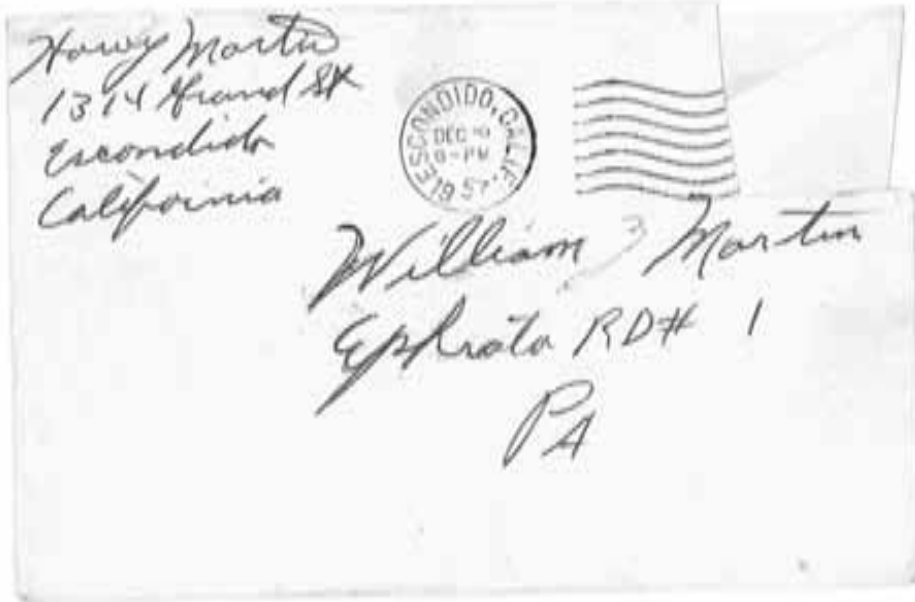 Martin
1314 Grand St
Escondido
California
ESCONDIDO, CALIF.
DEC
PM
1957
William Martin
Ephrata RD# 1
PA